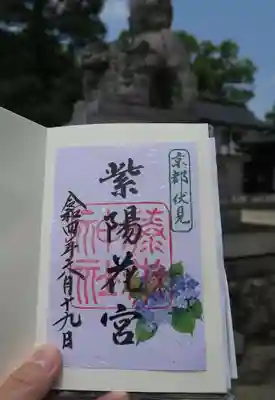 京都 伏見
紫陽花宮
藤森
神社
令和四年六月十九日